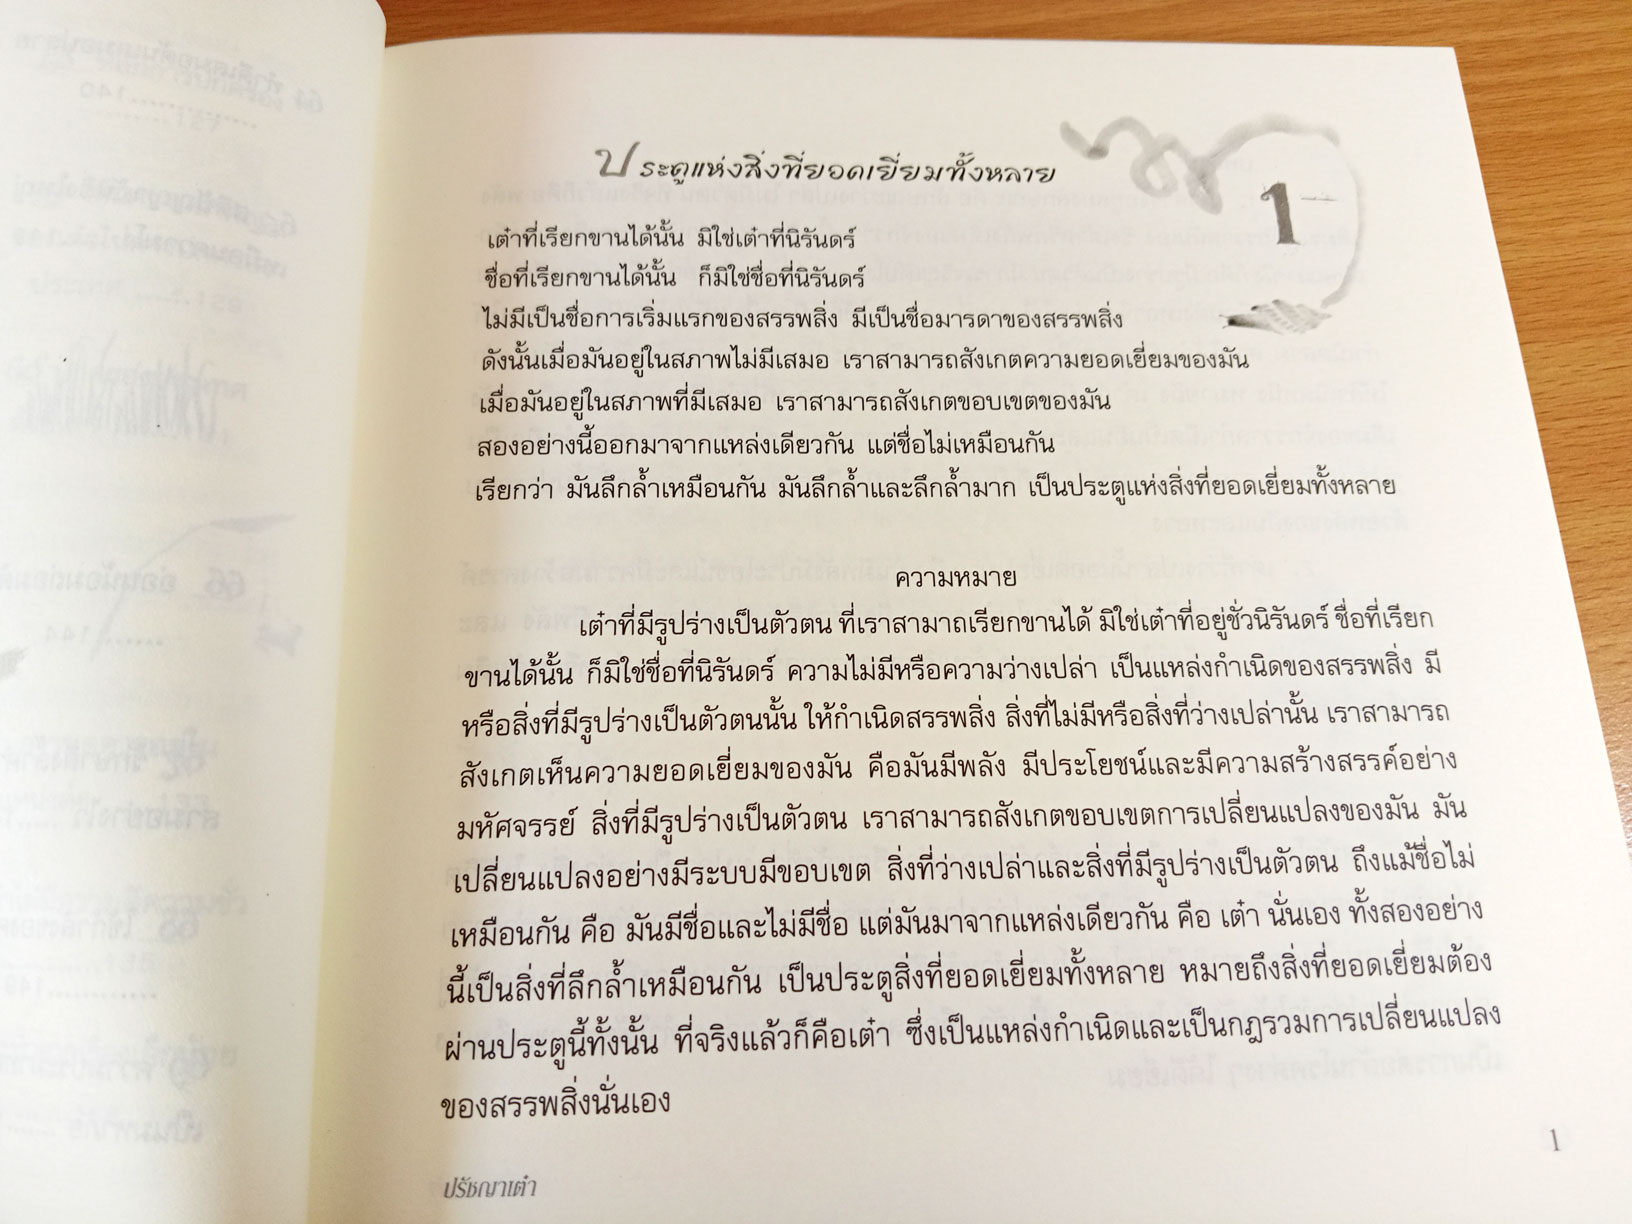 ประตูแห่งสิ่งที่ยอดเยี่ยมทั้งหลาย
1
เต๋าที่เรียกขานได้นั้น มิใช่เต๋าที่นิรันดร์
ชื่อที่เรียกขานได้นั้น ก็มิใช่ชื่อที่นิรันดร์
ไม่มีเป็นชื่อการเริ่มแรกของสรรพสิ่ง มีเป็นชื่อมารดาของสรรพสิ่ง
ดังนั้นเมื่อมันอยู่ในสภาพไม่มีเสมอ เราสามารถสังเกตความยอดเยี่ยมของมัน
เมื่อมันอยู่ในสภาพที่มีเสมอ เราสามารถสังเกตขอบเขตของมัน
สองอย่างนี้ออกมาจากแหล่งเดียวกัน แต่ชื่อไม่เหมือนกัน
เรียกว่า มันลึกล้ำเหมือนกัน มันลึกล้ำและลึกล้ำมาก เป็นประตูแห่งสิ่งที่ยอดเยี่ยมทั้งหลาย
ความหมาย
เต๋าที่มีรูปร่างเป็นตัวตน ที่เราสามาถเรียกขานได้ มิใช่เต๋าที่อยู่ชั่วนิรันดร์ ชื่อที่เรียก
ขานได้นั้น ก็มิใช่ชื่อที่นิรันดร์ ความไม่มีหรือความว่างเปล่า เป็นแหล่งกำเนิดของสรรพสิ่ง มี
หรือสิ่งที่มีรูปร่างเป็นตัวตนนั้น ให้กำเนิดสรรพสิ่ง สิ่งที่ไม่มีหรือสิ่งที่ว่างเปล่านั้น เราสามารถ
สังเกตเห็นความยอดเยี่ยมของมัน คือมันมีพลัง มีประโยชน์และมีความสร้างสรรค์อย่าง
มหัศจรรย์ สิ่งที่มีรูปร่างเป็นตัวตน เราสามารถสังเกตขอบเขตการเปลี่ยนแปลงของมัน มัน
เปลี่ยนแปลงอย่างมีระบบมีขอบเขต สิ่งที่ว่างเปล่าและสิ่งที่มีรูปร่างเป็นตัวตน ถึงแม้ชื่อไม่
เหมือนกัน คือ มันมีชื่อและไม่มีชื่อ แต่มันมาจากแหล่งเดียวกัน คือ เต๋า นั่นเอง ทั้งสองอย่าง
นี้เป็นสิ่งที่ลึกล้ำเหมือนกัน เป็นประตูสิ่งที่ยอดเยี่ยมทั้งหลาย หมายถึงสิ่งที่ยอดเยี่ยมต้อง
ผ่านประตูนี้ทั้งนั้น ที่จริงแล้วก็คือเต๋า ซึ่งเป็นแหล่งกำเนิดและเป็นกฎรวมการเปลี่ยนแปลง
ของสรรพสิ่งนั่นเอง
1
ปรัชญาเต๋า